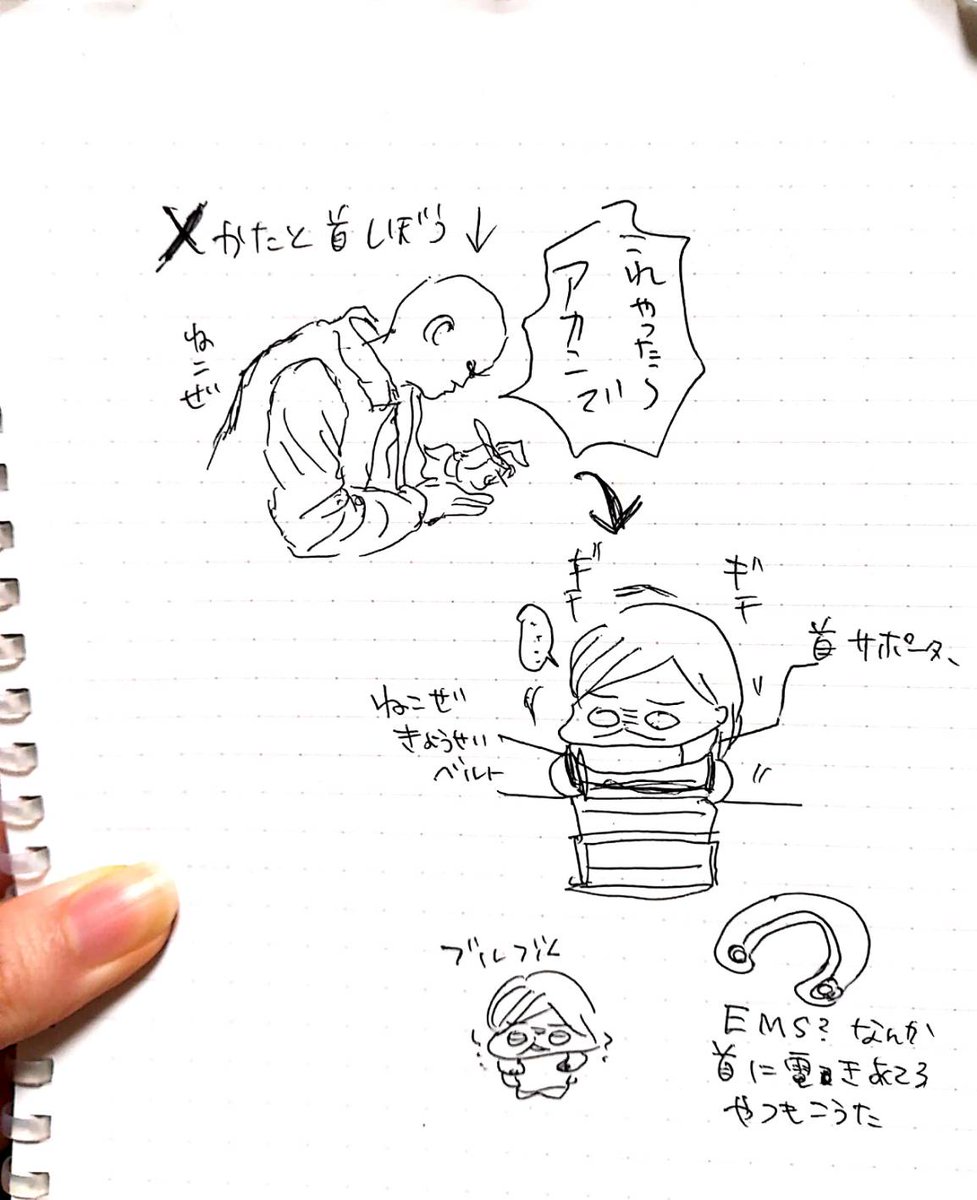 ×かたと首しぼう↓
これやったら
アカンで
ねこぜ
ギチ
ギチ
首サポーター
ねこぜ
きょうせい
ベルト
ブルブル
EMS?なんか
首に電きあてる
やつもこうた